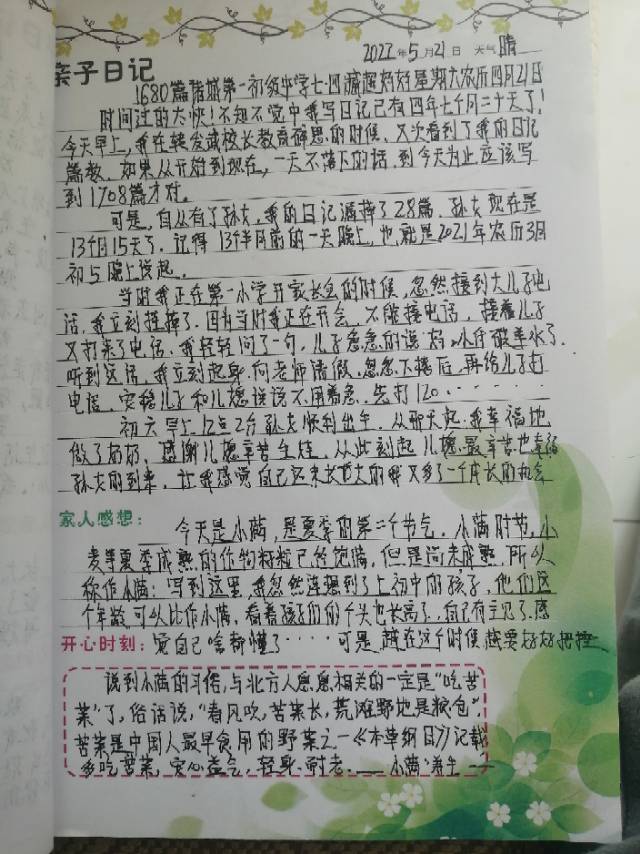 2022年5月21日 天气 晴
亲子日记
1680篇诸城第一初级中学七四臧超好好星期六农历四月21日
时间过的太快!不知不觉中我写日记已有四年七个月二十天了!
今天早上,我在转发臧校长教育碎思的时候,又次看到了我的日记
篇数。如果从开始到现在,一天不落下的话,到今天为止应该写
到1708篇才对。
可是,自从有了孙女,我的日记漏掉了28篇。孙女现在是
13个月15天了。记得13个半月前的一天晚上,也就是2021年农历3月
初5晚上说起。
当时我正在第一小学开家长会的时候,忽然接到大儿子电
话,我立刻挂掉了。因为当时我正在开会,不能接电话,接着儿子
又打来了电话,我轻轻问了一句,儿子急急的说:妈,小仔破羊水了。
听到这话,我立刻起身,向老师请假,匆匆下楼后,再给儿子打
电话,安稳儿子和儿媳该说不用着急,先打120······
初六早上12点2分孙女顺利出生,从那天起,我幸福地
做了奶奶,感谢儿媳辛苦生娃,从此刻起儿媳最辛苦也幸福
孙女的到来,让我感觉自己还未长大的我又多了一个成长的机会
家人感想: 今天是小满,是夏季的第二个节气。小满时节,小
麦等夏季成熟的作物籽粒已经饱满,但是尚未成熟,所以
称作小满;写到这里,我忽然连想到了上初中的孩子,他们这
个年龄,可以比作小满,看着孩子们的个头也长高了,自己有主见了,感
开心时刻: 觉自己啥都懂了····可是,越在这个时候越要好好把握
说到小满的习俗,与北方人息息相关的一定是"吃苦
菜"了,俗话说,"春风吹,苦菜长,荒滩野地是粮仓",
苦菜是中国人最早食用的野菜之一《本草纲目》记载
多吃苦菜,安心益气,轻身、耐老。——小满养生——